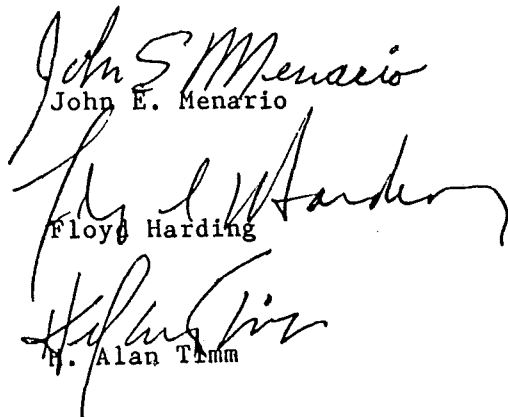 John E Menario
John E. Menario
Floyd Harding
Floyd Harding
H Alan Timm
H. Alan Timm